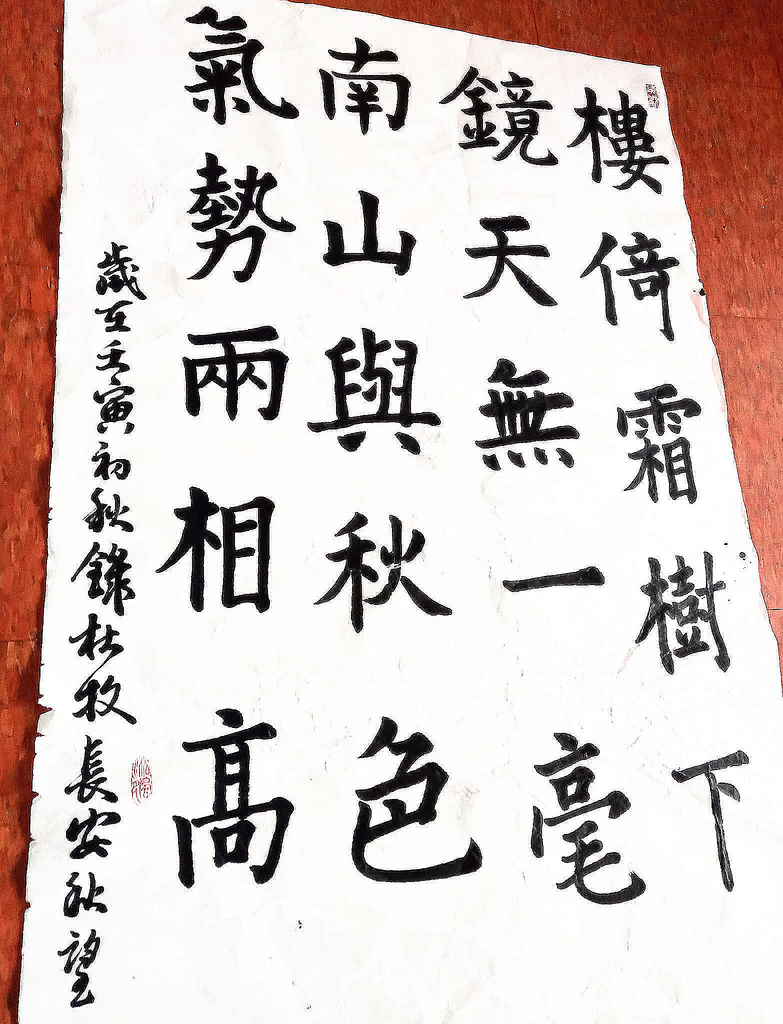 樓倚霜樹下
鏡天無一毫
南山與秋色
氣勢兩相高
歲在壬寅初秋錄杜牧長安秋望